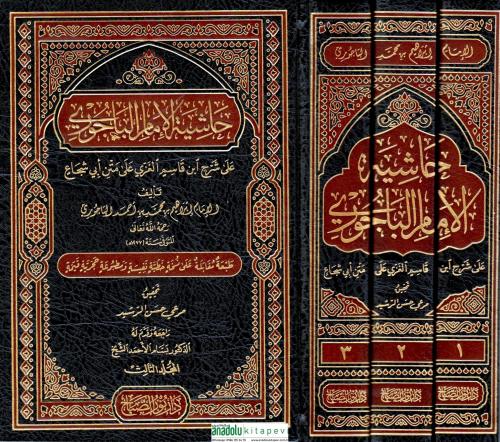 حاشية الإمام الباجوري
على شرح ابن قاسم الغزي على متن أبي شجاع
تأليف
الإمام إبراهيم بن محمد بن أحمد الباجوري
رحمه الله تعالى
طبعة مقابلة على نسخة خطية نفيسة ومطبوعة حجرية قيمة
تحقيق
مرعي حسن الرشيد
راجعه وقدم له
الدكتور بسام الأحمد الشيخ
المجلد الثالث
دار نور الصباح
الإمام إبراهيم بن محمد الباجوري
حاشية
الإمام الباجوري
على شرح ابن قاسم الغزي على متن أبي شجاع
تحقيق
مرعي حسن الرشيد
١ ٢ ٣
دار نور الصباح دار نور الصباح دار نور الصباح
anadolu kitapevi